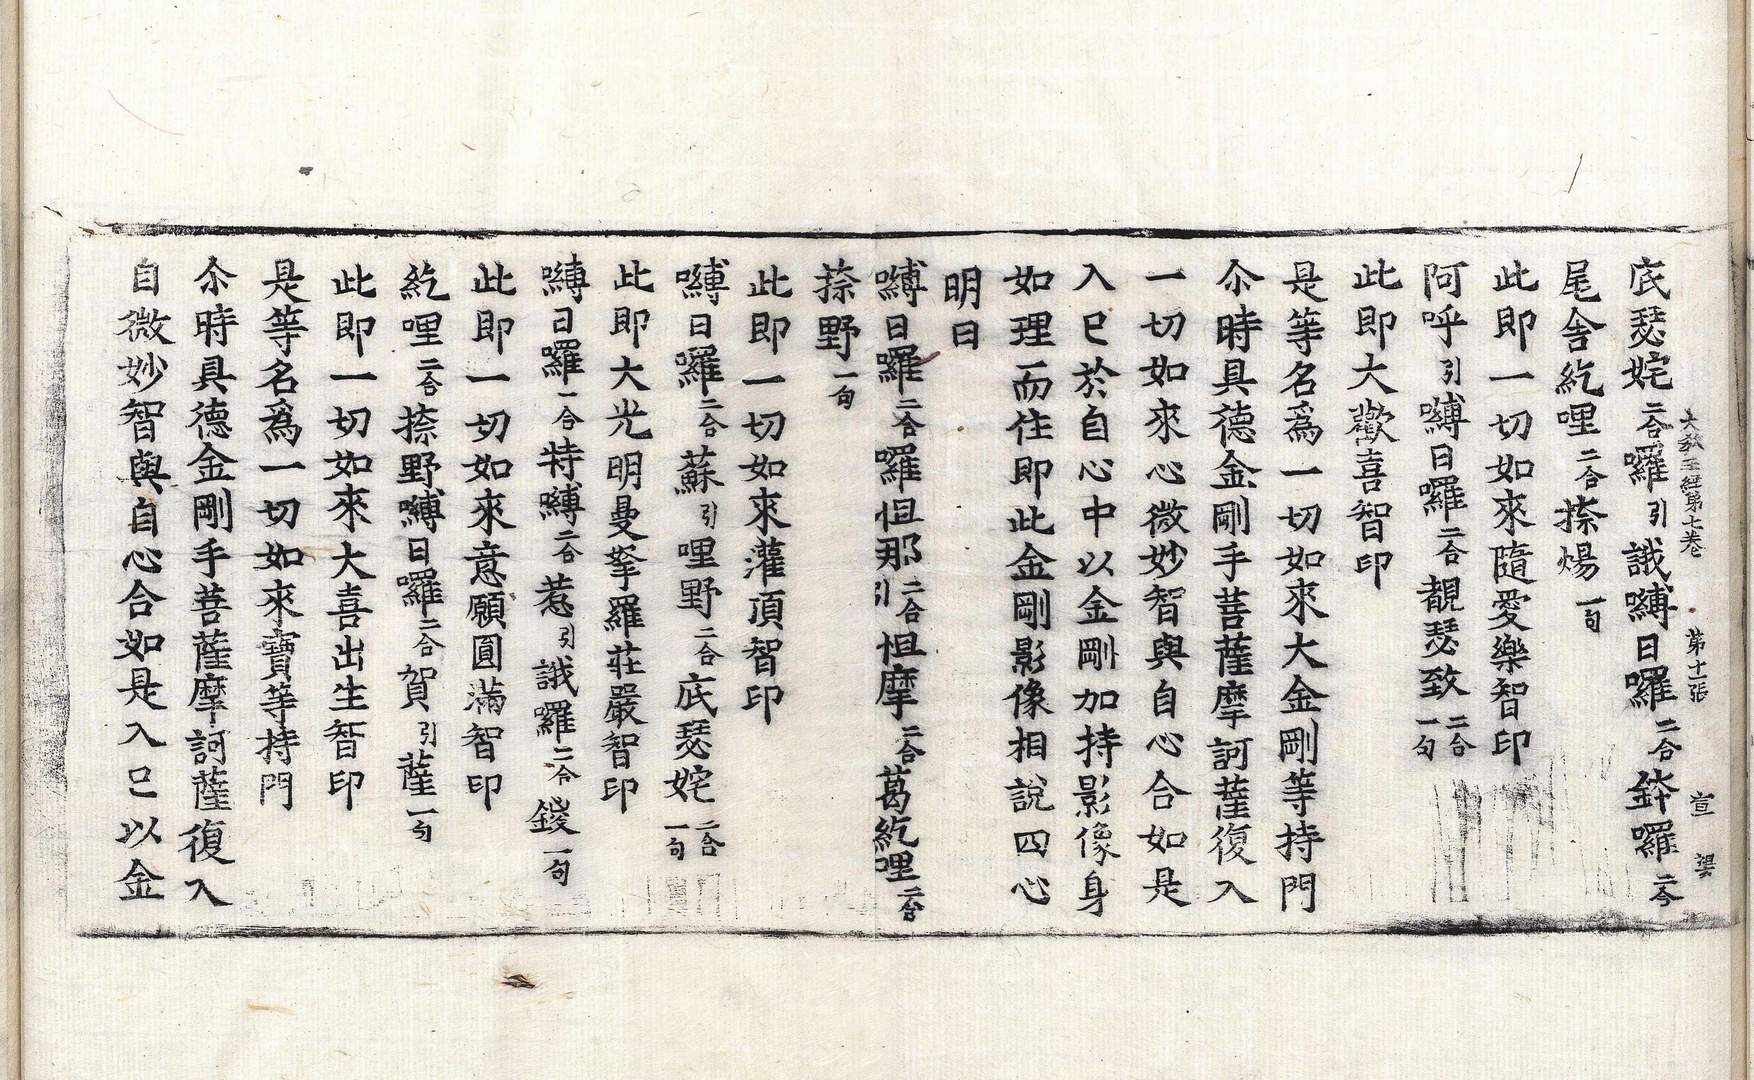 大敎王經第七卷 第十一張 宣 㓒
底瑟姹二合囉引誐嚩日囉二合鉢囉二合
尾舍紇哩二合捺煬一句
此即一切如來隨愛樂智印
阿呼引嚩日囉二合覩瑟致二合一句
此即大歡喜智印
是等名爲一切如來大金剛等持門
尒時具德金剛手菩薩摩訶薩復入
一切如來心微妙智與自心合如是
入已於自心中以金剛加持影像身
如理而住即此金剛影像相說四心
明曰
嚩日囉二合囉怛那二合引怛摩二合葛紇哩二合
捺野一句
此即一切如來灌頂智印
嚩日囉二合蘇引哩野二合底瑟姹二合一句
此即大光明曼拏羅莊嚴智印
嚩日囉二合特嚩二合惹引誐囉二合鍐一句
此即一切如來意願圓滿智印
紇哩二合捺野嚩日囉二合賀引薩一句
此即一切如來大喜出生智印
是等名爲一切如來寶等持門
尒時具德金剛手菩薩摩訶薩復入
自微妙智與自心合如是入已以金